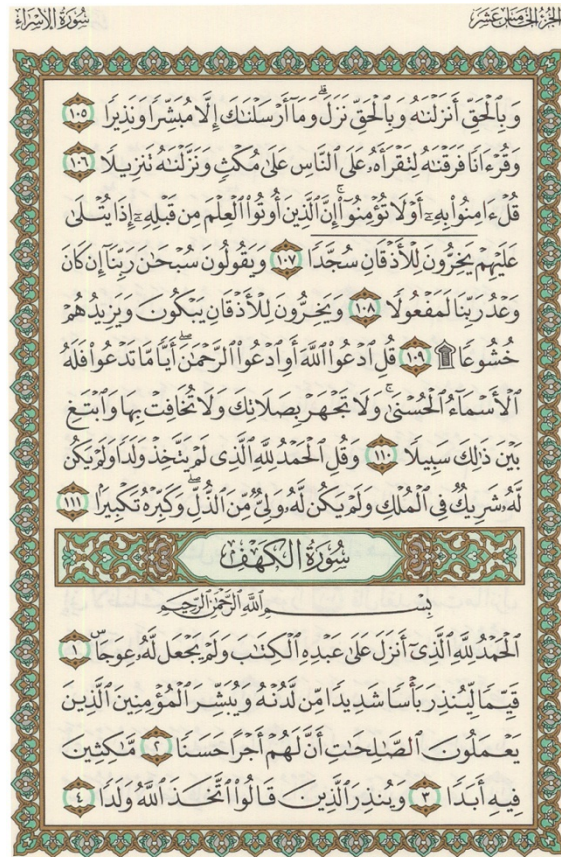 الجزء الخامس عشر
سُورَةُ الإِسْرَاءِ
وَبِٱلْحَقِّ أَنزَلْنَٰهُ وَبِٱلْحَقِّ نَزَلَ ۗ وَمَآ أَرْسَلْنَٰكَ إِلَّا مُبَشِّرًا وَنَذِيرًا ١٠٥
وَقُرْءَانًا فَرَقْنَٰهُ لِتَقْرَأَهُۥ عَلَى ٱلنَّاسِ عَلَىٰ مُكْثٍ وَنَزَّلْنَٰهُ تَنزِيلًا ١٠٦
قُلْ ءَامِنُوا۟ بِهِۦٓ أَوْ لَا تُؤْمِنُوٓا۟ ۚ إِنَّ ٱلَّذِينَ أُوتُوا۟ ٱلْعِلْمَ مِن قَبْلِهِۦٓ إِذَا يُتْلَىٰ
عَلَيْهِمْ يَخِرُّونَ لِلْأَذْقَانِ سُجَّدًا ١٠٧ وَيَقُولُونَ سُبْحَٰنَ رَبِّنَآ إِن كَانَ
وَعْدُ رَبِّنَا لَمَفْعُولًا ١٠٨ وَيَخِرُّونَ لِلْأَذْقَانِ يَبْكُونَ وَيَزِيدُهُمْ
خُشُوعًا ۩ ١٠٩ قُلِ ٱدْعُوا۟ ٱللَّهَ أَوِ ٱدْعُوا۟ ٱلرَّحْمَٰنَ ۖ أَيًّا مَّا تَدْعُوا۟ فَلَهُ
ٱلْأَسْمَآءُ ٱلْحُسْنَىٰ ۚ وَلَا تَجْهَرْ بِصَلَاتِكَ وَلَا تُخَافِتْ بِهَا وَٱبْتَغِ
بَيْنَ ذَٰلِكَ سَبِيلًا ١١٠ وَقُلِ ٱلْحَمْدُ لِلَّهِ ٱلَّذِى لَمْ يَتَّخِذْ وَلَدًا وَلَمْ يَكُن
لَّهُۥ شَرِيكٌ فِى ٱلْمُلْكِ وَلَمْ يَكُن لَّهُۥ وَلِىٌّ مِّنَ ٱلذُّلِّ ۖ وَكَبِّرْهُ تَكْبِيرًۢا ١١١
سُورَةُ الكَهْفِ
بِسْمِ ٱللَّهِ ٱلرَّحْمَٰنِ ٱلرَّحِيمِ
ٱلْحَمْدُ لِلَّهِ ٱلَّذِىٓ أَنزَلَ عَلَىٰ عَبْدِهِ ٱلْكِتَٰبَ وَلَمْ يَجْعَل لَّهُۥ عِوَجَاۜ ١
قَيِّمًا لِّيُنذِرَ بَأْسًا شَدِيدًا مِّن لَّدُنْهُ وَيُبَشِّرَ ٱلْمُؤْمِنِينَ ٱلَّذِينَ
يَعْمَلُونَ ٱلصَّٰلِحَٰتِ أَنَّ لَهُمْ أَجْرًا حَسَنًا ٢ مَّٰكِثِينَ
فِيهِ أَبَدًا ٣ وَيُنذِرَ ٱلَّذِينَ قَالُوا۟ ٱتَّخَذَ ٱللَّهُ وَلَدًا ٤